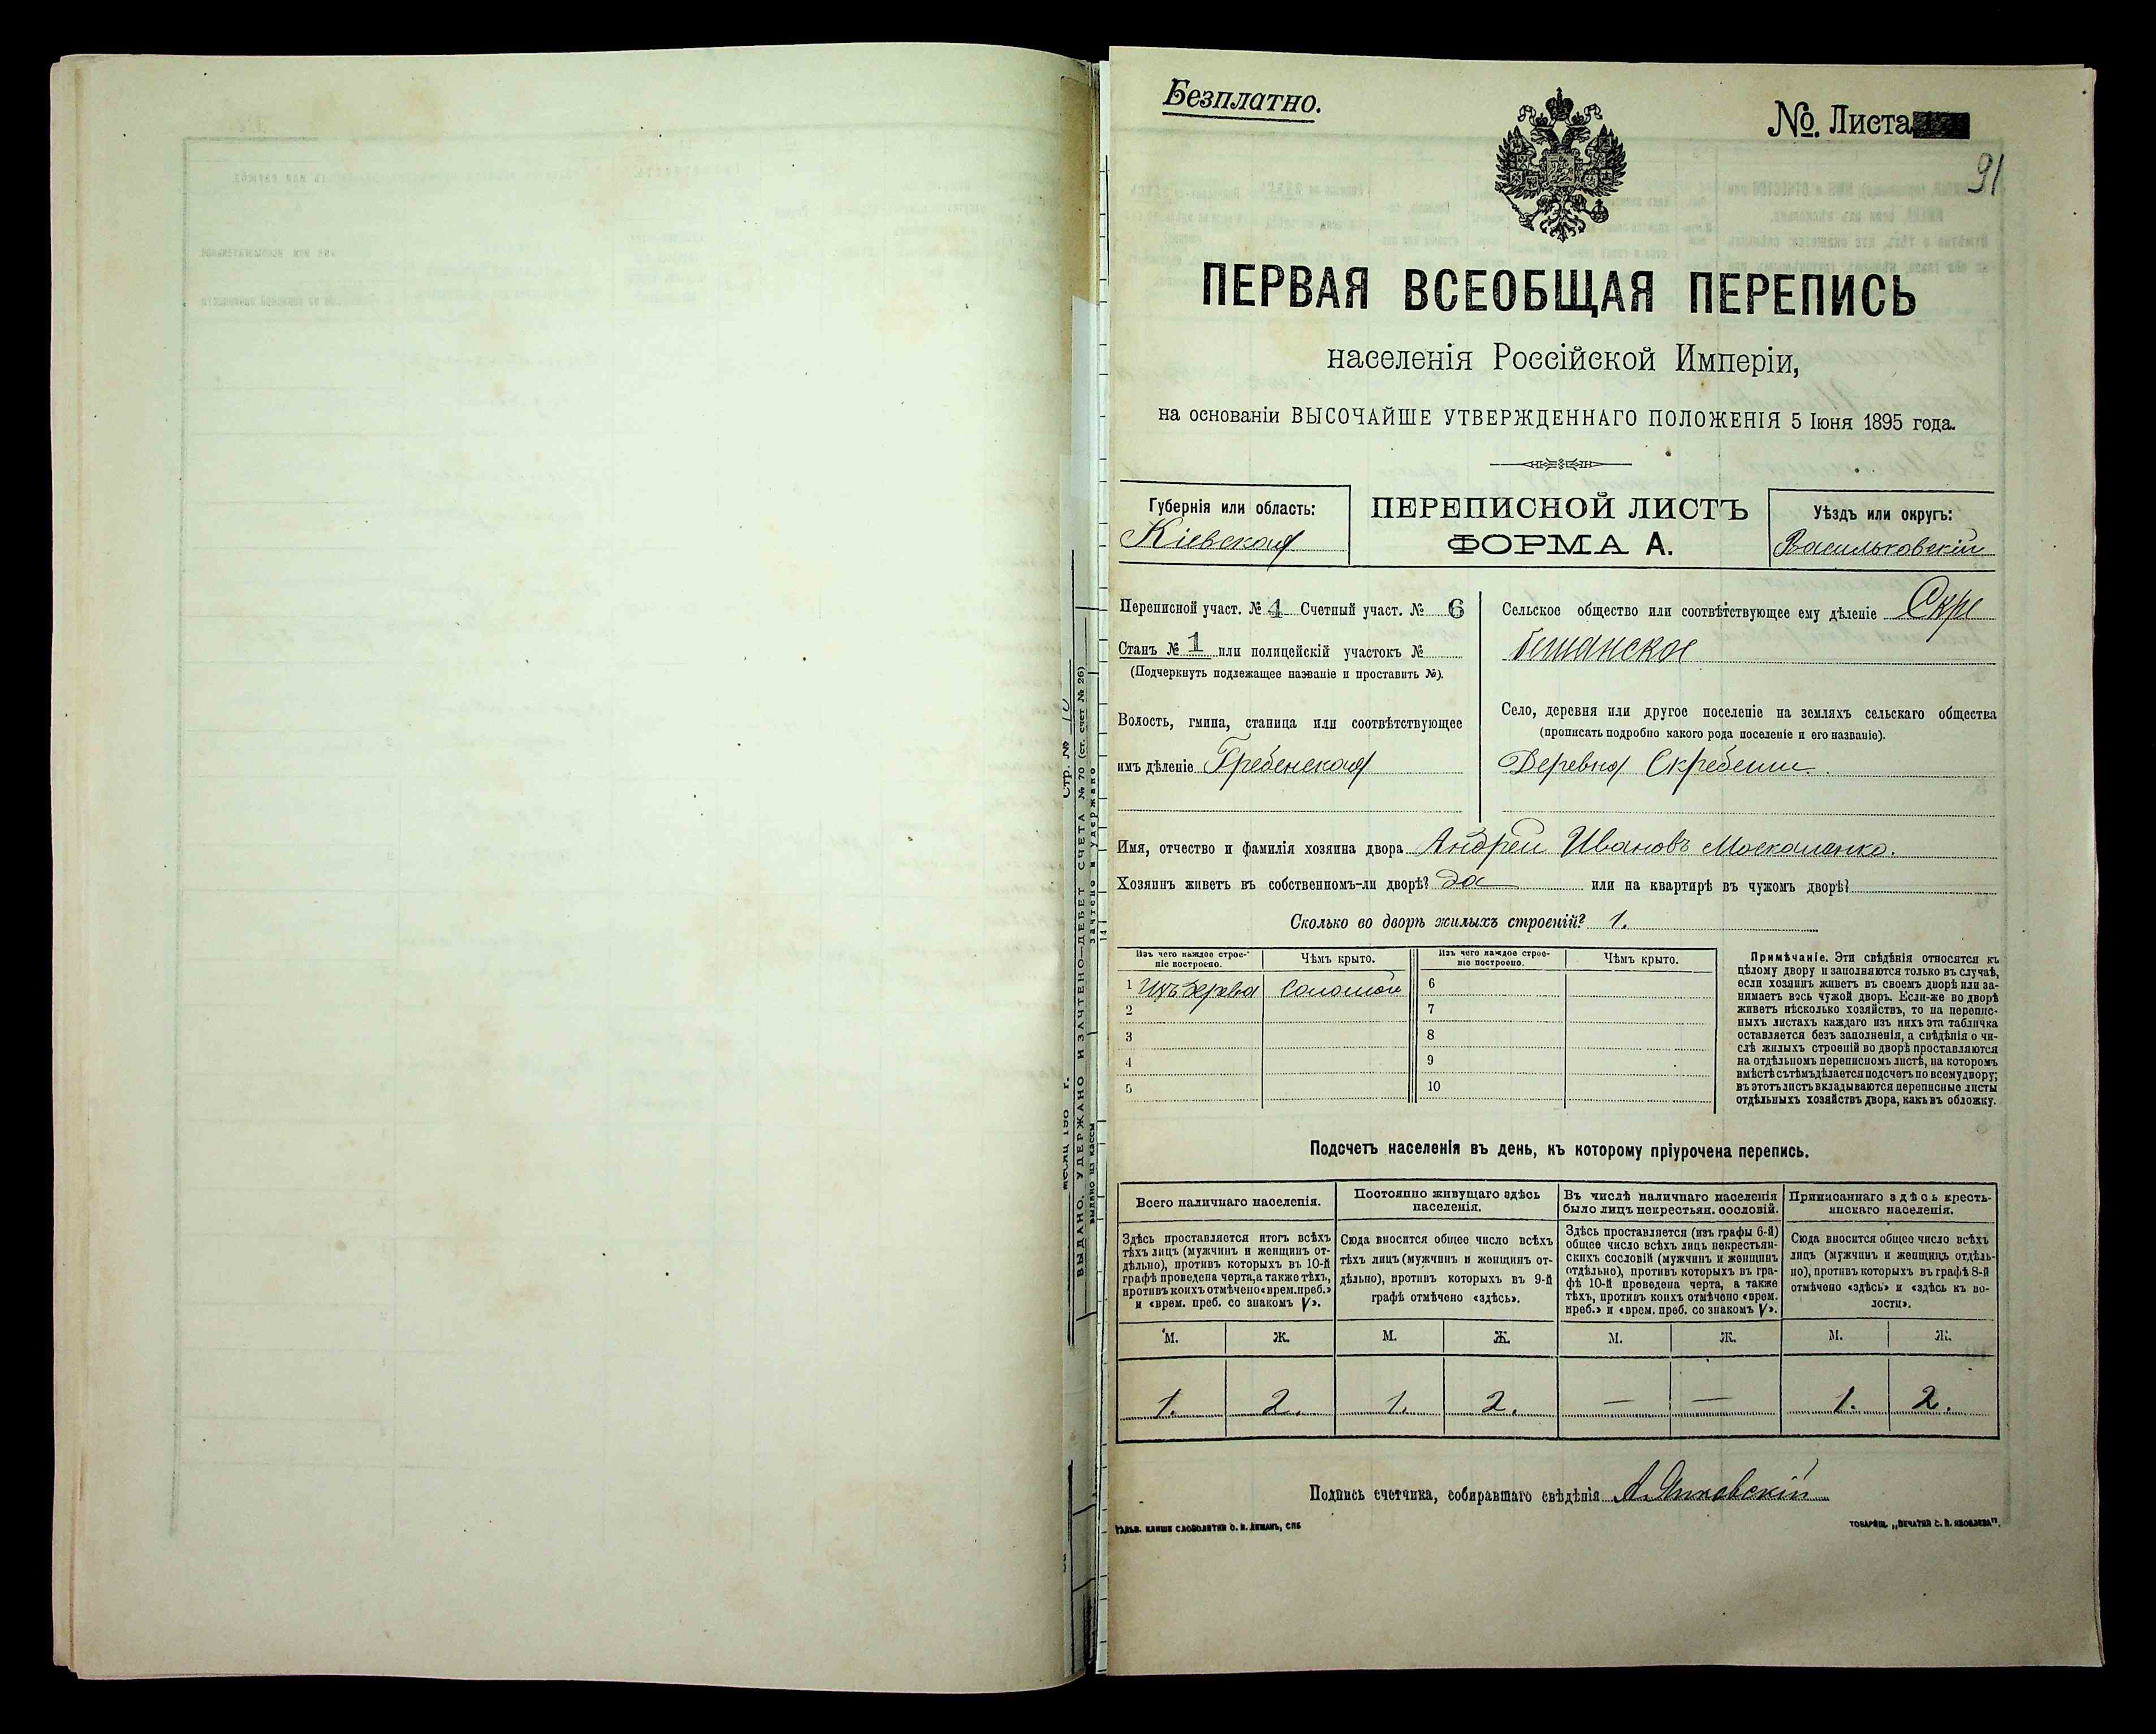 Безплатно.
№. Листа
91
ПЕРВАЯ ВСЕОБЩАЯ ПЕРЕПИСЬ
населенія Россійской Имперіи,
на основаніи ВЫСОЧАЙШЕ УТВЕРЖДЕННАГО ПОЛОЖЕНІЯ 5 Іюня 1895 года.
Губернія или область:
Кіевская
ПЕРЕПИСНОЙ ЛИСТЪ
ФОРМА А.
Уѣздъ или округъ:
Васильковскій
Переписной участ. № 4 Счетный участ. № 6
Станъ № 1 или полицейскій участокъ №
(Подчеркнуть подлежащее названіе и проставить №).
Волость, гмина, станица или соотвѣтствующее
имъ дѣленіе Гребенская
Сельское общество или соотвѣтствующее ему дѣленіе Скре
бешанское
Село, деревня или другое поселеніе на земляхъ сельскаго общества
(прописать подробно какого рода поселеніе и его названіе).
Деревня Скребеши.
Имя, отчество и фамилія хозяина двора Андрей Ивановъ Москаленко.
Хозяинъ живетъ въ собственномъ-ли дворѣ? да или на квартирѣ въ чужомъ дворѣ?
Сколько во дворѣ жилыхъ строеній? 1.
Изъ чего каждое строе-
ніе построено.
Чѣмъ крыто.
Изъ чего каждое строе-
ніе построено.
Чѣмъ крыто.
1 Изъ дерева Соломой
2
3
4
5
6
7
8
9
10
Примѣчаніе. Эти свѣдѣнія относятся къ
цѣлому двору и заполняются только въ случаѣ,
если хозяинъ живетъ въ своемъ дворѣ или за-
нимаетъ весь чужой дворъ. Если-же во дворѣ
живетъ нѣсколько хозяйствъ, то на перепис-
ныхъ листахъ каждаго изъ нихъ эта табличка
оставляется безъ заполненія, а свѣдѣнія о чи-
слѣ жилыхъ строеній во дворѣ проставляются
на отдѣльномъ переписномъ листѣ, на которомъ
вмѣстѣ съ тѣмъ дѣлается подсчетъ по всему двору;
въ этотъ листъ вкладываются переписные листы
отдѣльныхъ хозяйствъ двора, какъ въ обложку.
Подсчетъ населенія въ день, къ которому пріурочена перепись.
Всего наличнаго населенія.
Здѣсь проставляется итогъ всѣхъ
тѣхъ лицъ (мужчинъ и женщинъ от-
дѣльно), противъ которыхъ въ 10-й
графѣ проведена черта, а также тѣхъ,
противъ коихъ отмѣчено «врем. преб.»
и «врем. преб. со знакомъ V».
Постоянно живущаго здѣсь
населенія.
Сюда вносится общее число всѣхъ
тѣхъ лицъ (мужчинъ и женщинъ от-
дѣльно), противъ которыхъ въ 9-й
графѣ отмѣчено «здѣсь».
Въ числѣ наличнаго населенія
было лицъ некрестьян. сословій.
Здѣсь проставляется (изъ графы 6-й)
общее число всѣхъ лицъ некрестьян-
скихъ сословій (мужчинъ и женщинъ
отдѣльно), противъ которыхъ въ гра-
фѣ 10-й проведена черта, а также
тѣхъ, противъ коихъ отмѣчено «врем.
преб.» и «врем. преб. со знакомъ V».
Приписаннаго здѣсь кресть-
янскаго населенія.
Сюда вносится общее число всѣхъ
лицъ (мужчинъ и женщинъ отдѣль-
но), противъ которыхъ въ графѣ 8-й
отмѣчено «здѣсь» и «здѣсь къ во-
лости».
М. Ж. М. Ж. М. Ж. М. Ж.
1. 2. 1. 2. — — 1. 2.
Подпись счетчика, собиравшаго свѣдѣнія
ТОВАРИЩ. „ПЕЧАТНЯ С. П. ЯКОВЛЕВА".
Стр. № 10
ВЫДАНО, УДЕРЖАНО И ЗАЧТЕНО—ДЕБЕТ СЧЕТА № 70 (ст. счет № 26)
зачтено и удержано
выдано из кассы
14